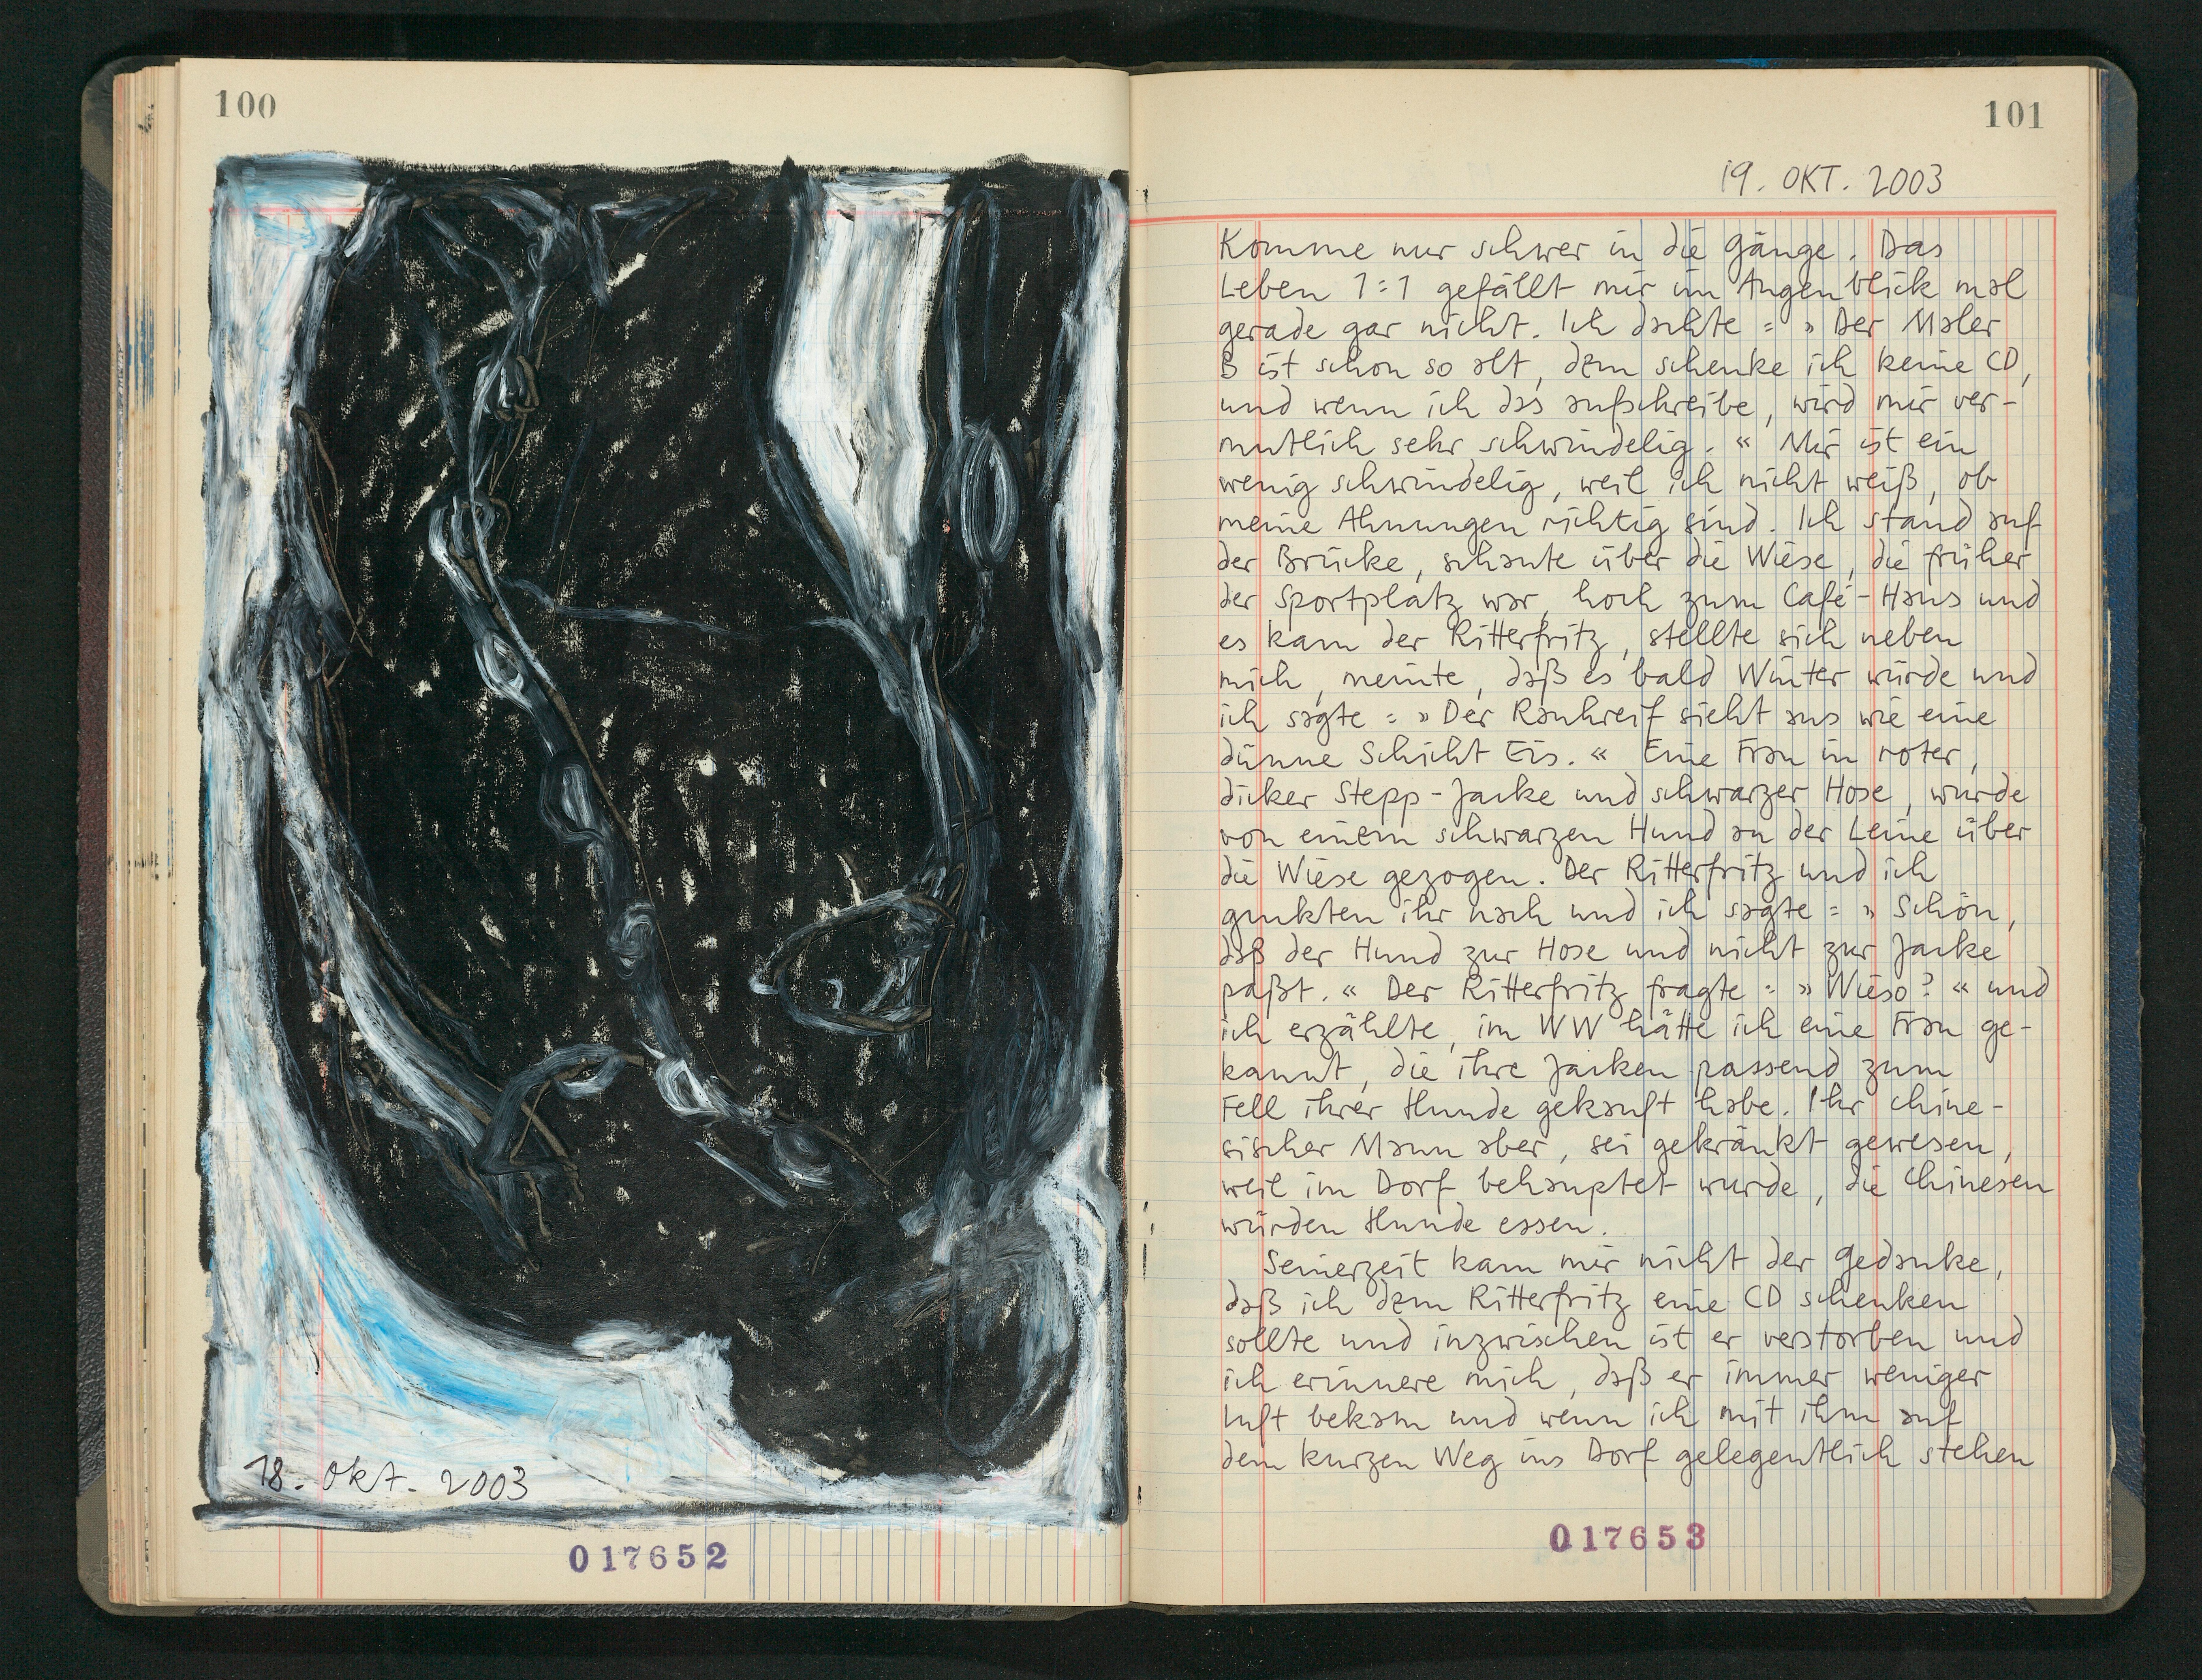 100
18. Okt. 2003
017652
101
19. OKT. 2003
Komme nur schwer in die Gänge. Das
Leben 1:1 gefällt mir im Augenblick mal
gerade gar nicht. Ich dachte: »Der Maler
B ist schon so alt, dem schenke ich keine CD,
und wenn ich das aufschreibe, wird mir ver-
mutlich sehr schwindelig.« Mir ist ein
wenig schwindelig, weil ich nicht weiß, ob
meine Ahnungen richtig sind. Ich stand auf
der Brücke, schaute über die Wiese, die früher
der Sportplatz war, hoch zum Café-Haus und
es kam der Ritterfritz, stellte sich neben
mich, meinte, daß es bald Winter würde und
ich sagte: »Der Rauhreif sieht aus wie eine
dünne Schicht Eis.« Eine Frau in roter,
dicker Stepp-Jacke und schwarzer Hose, wurde
von einem schwarzen Hund an der Leine über
die Wiese gezogen. Der Ritterfritz und ich
guckten ihr nach und ich sagte: »Schön,
daß der Hund zur Hose und nicht zur Jacke
paßt.« Der Ritterfritz fragte: »Wieso?« und
ich erzählte, im WW hätte ich eine Frau ge-
kannt, die ihre Jacken passend zum
Fell ihrer Hunde gekauft habe. Ihr chine-
sischer Mann aber, sei gekränkt gewesen,
weil im Dorf behauptet wurde, die Chinesen
würden Hunde essen.
Seinerzeit kam mir nicht der Gedanke,
daß ich dem Ritterfritz eine CD schenken
sollte und inzwischen ist er verstorben und
ich erinnere mich, daß er immer weniger
Luft bekam und wenn ich mit ihm auf
dem kurzen Weg ins Dorf gelegentlich stehen
017653